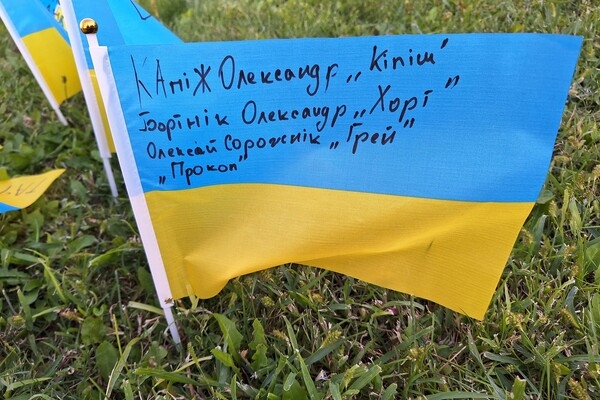 КАніЖ Олександр „Кіпіш"
Бортнік Олександр „Хорт"
Олексай Сорожнік „Грей"
„Прокоп"